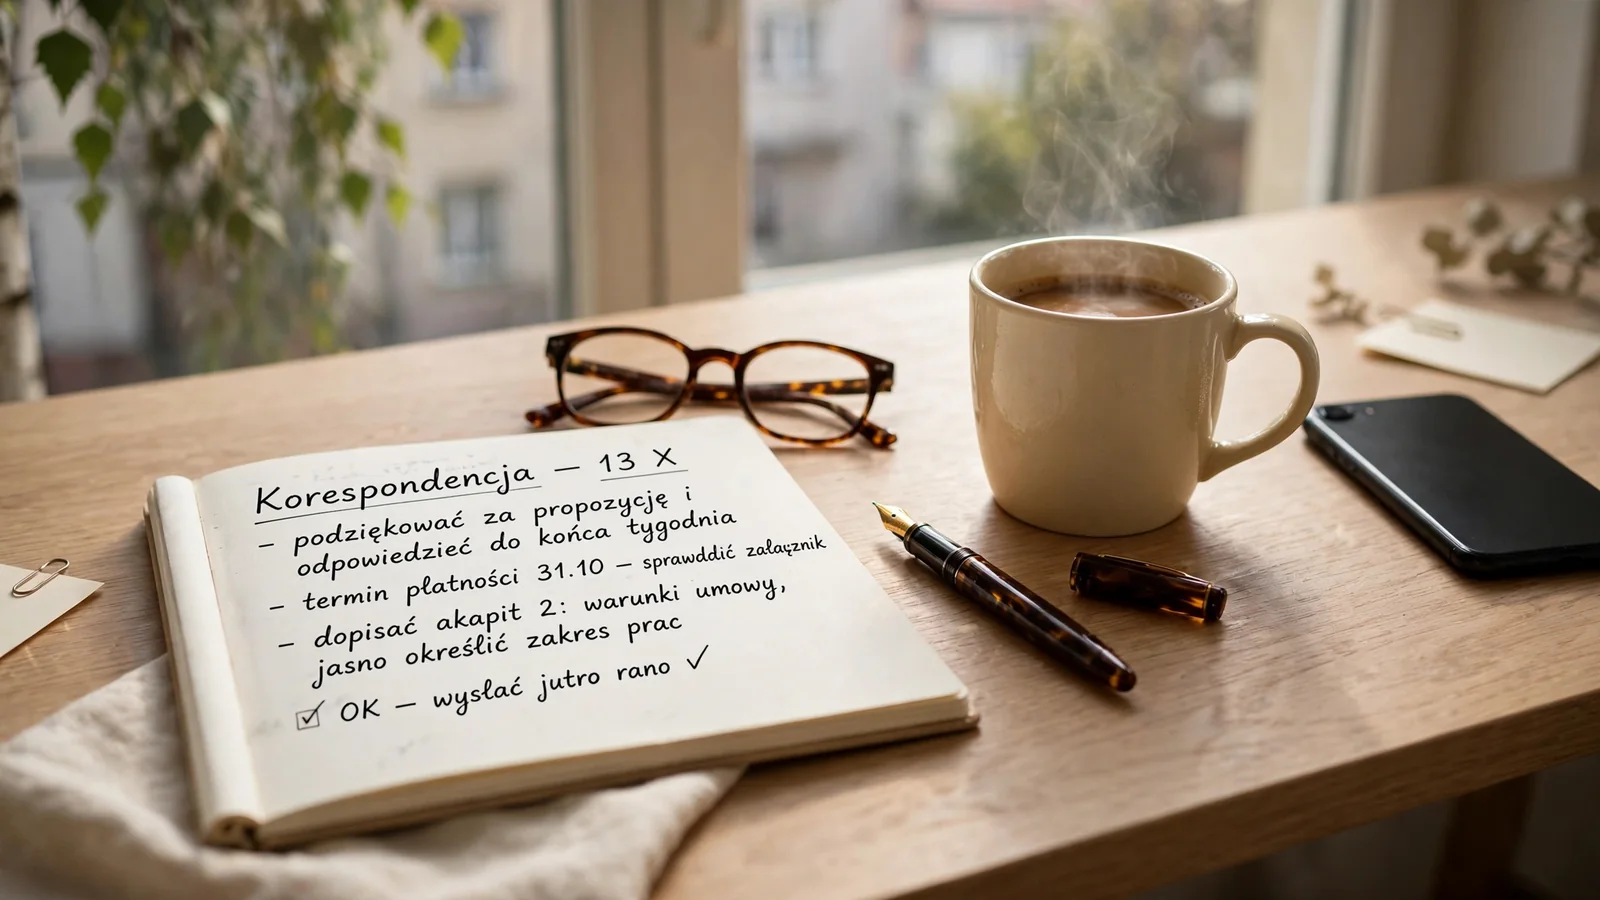 Korespondencja — 13 X
– podziękować za propozycję i
odpowiedzieć do końca tygodnia
– termin płatności 31.10 – sprawddić załącznik
– dopisać akapit 2: warunki umowy,
jasno określić zakres prac
☑ OK – wysłać jutro rano ✓